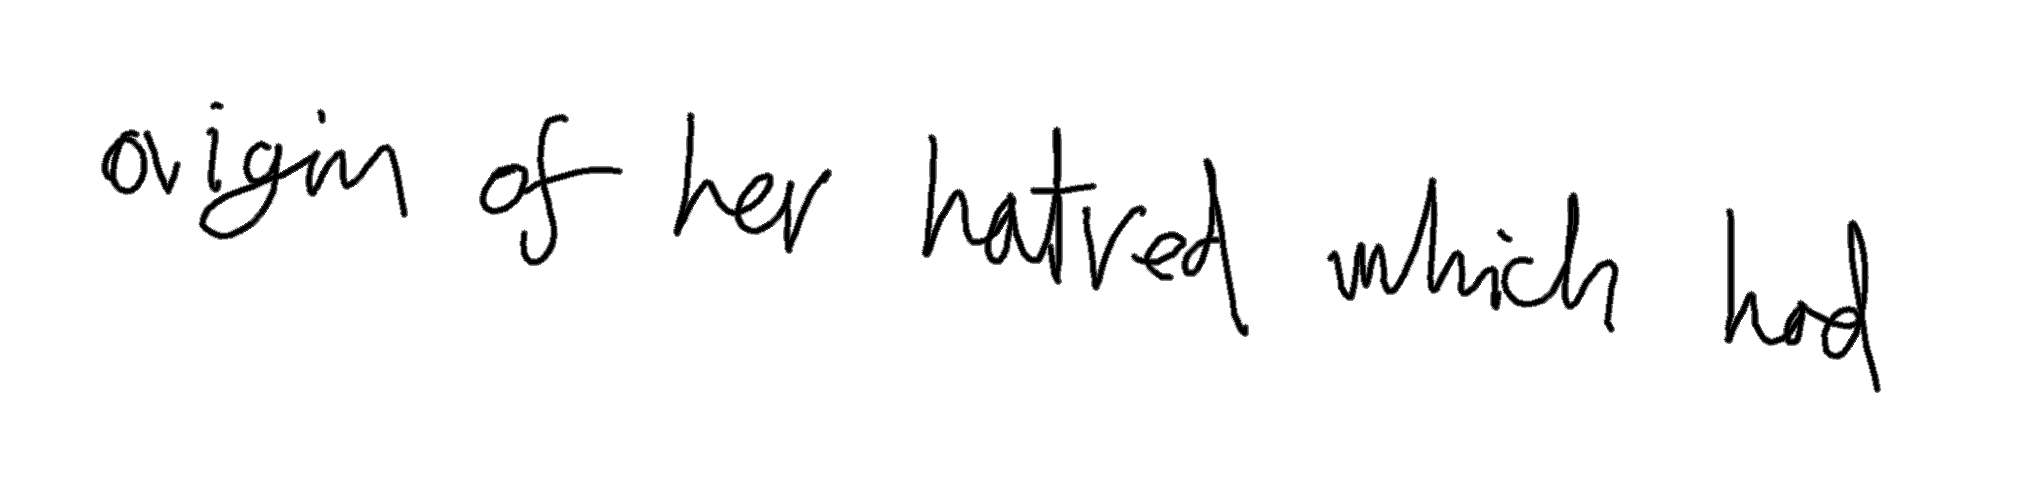 origin of her hatred which had